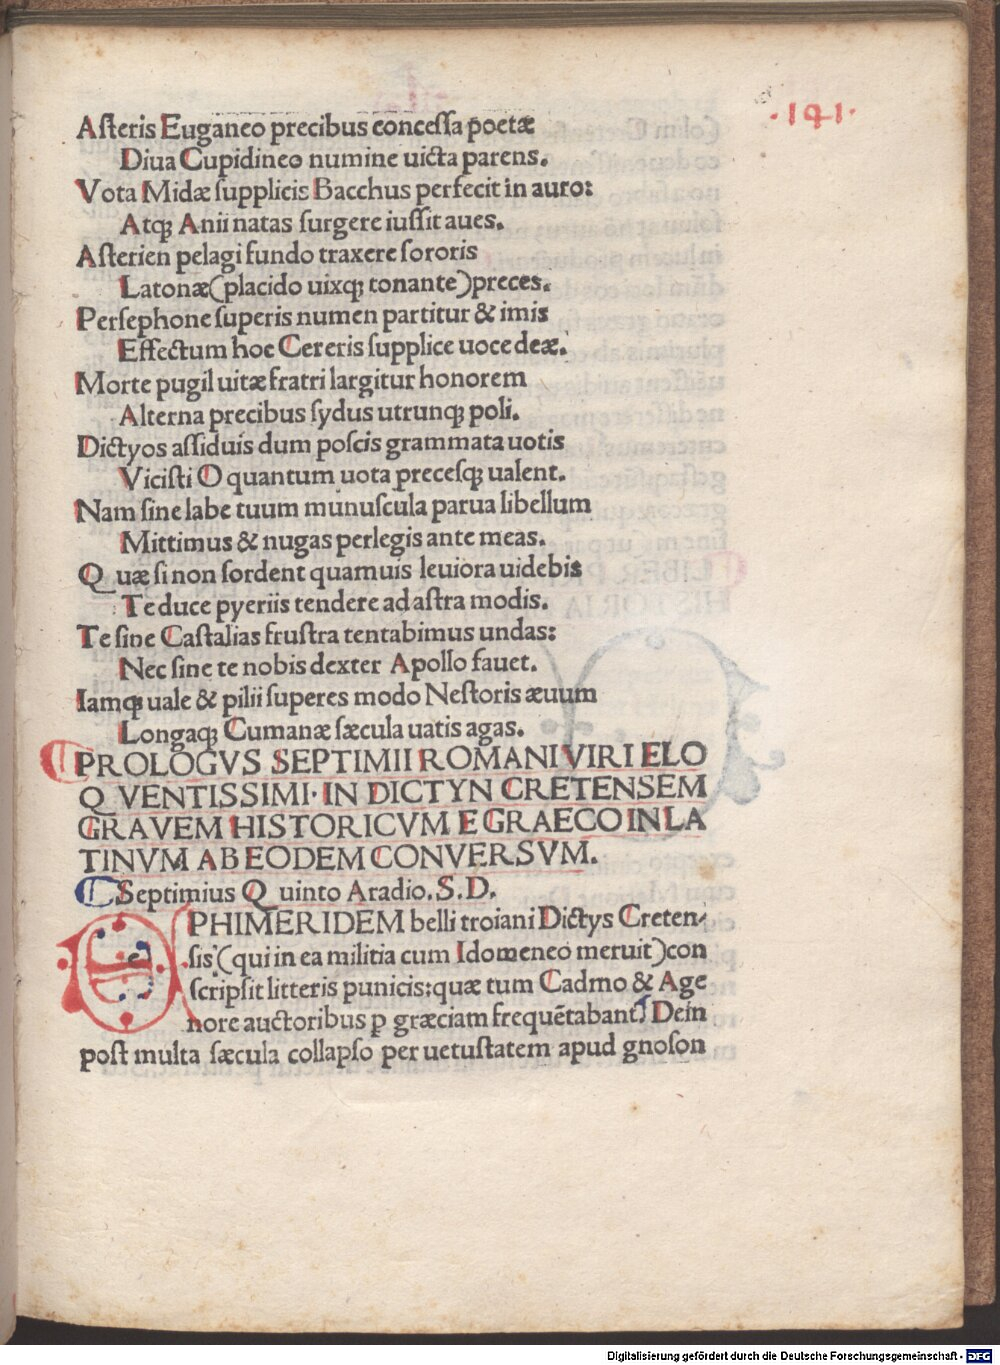 ·141·
Asteris Euganeo precibus concessa poetæ
Diua Cupidineo numine uicta parens.
Vota Midæ supplicis Bacchus perfecit in auro:
Atqꝫ Anii natas surgere iussit aues.
Asterien pelagi fundo traxere sororis
Latonæ(placido uixqꝫ tonante)preces.
Persephone superis numen partitur & imis
Effectum hoc Cereris supplice uoce deæ.
Morte pugil uitæ fratri largitur honorem
Alterna precibus sydus utrunqꝫ poli.
Dictyos assiduis dum poscis grammata uotis
Vicisti O quantum uota precesqꝫ ualent.
Nam sine labe tuum munuscula parua libellum
Mittimus & nugas perlegis ante meas.
Quæ si non sordent quamuis leuiora uidebis
Te duce pyeriis tendere ad astra modis.
Te sine Castalias frustra tentabimus undas:
Nec sine te nobis dexter Apollo fauet.
Iamqꝫ uale & pilii superes modo Nestoris æuum
Longaqꝫ Cumanæ sæcula uatis agas.
PROLOGVS SEPTIMII ROMANI VIRI ELO
QVENTISSIMI· IN DICTYN CRETENSEM
GRAVEM HISTORICVM E GRAECO IN LA
TINVM AB EODEM CONVERSVM.
Septimius Quinto Aradio.S.D.
EPHIMERIDEM belli troiani Dictys Creten-
sis (qui in ea militia cum Idomeneo meruit)con
scripsit litteris punicis:quæ tum Cadmo & Age
nore auctoribus p græciam frequẽtabant. Dein
post multa sæcula collapso per uetustatem apud gnoson
Digitalisierung gefördert durch die Deutsche Forschungsgemeinschaft - DFG